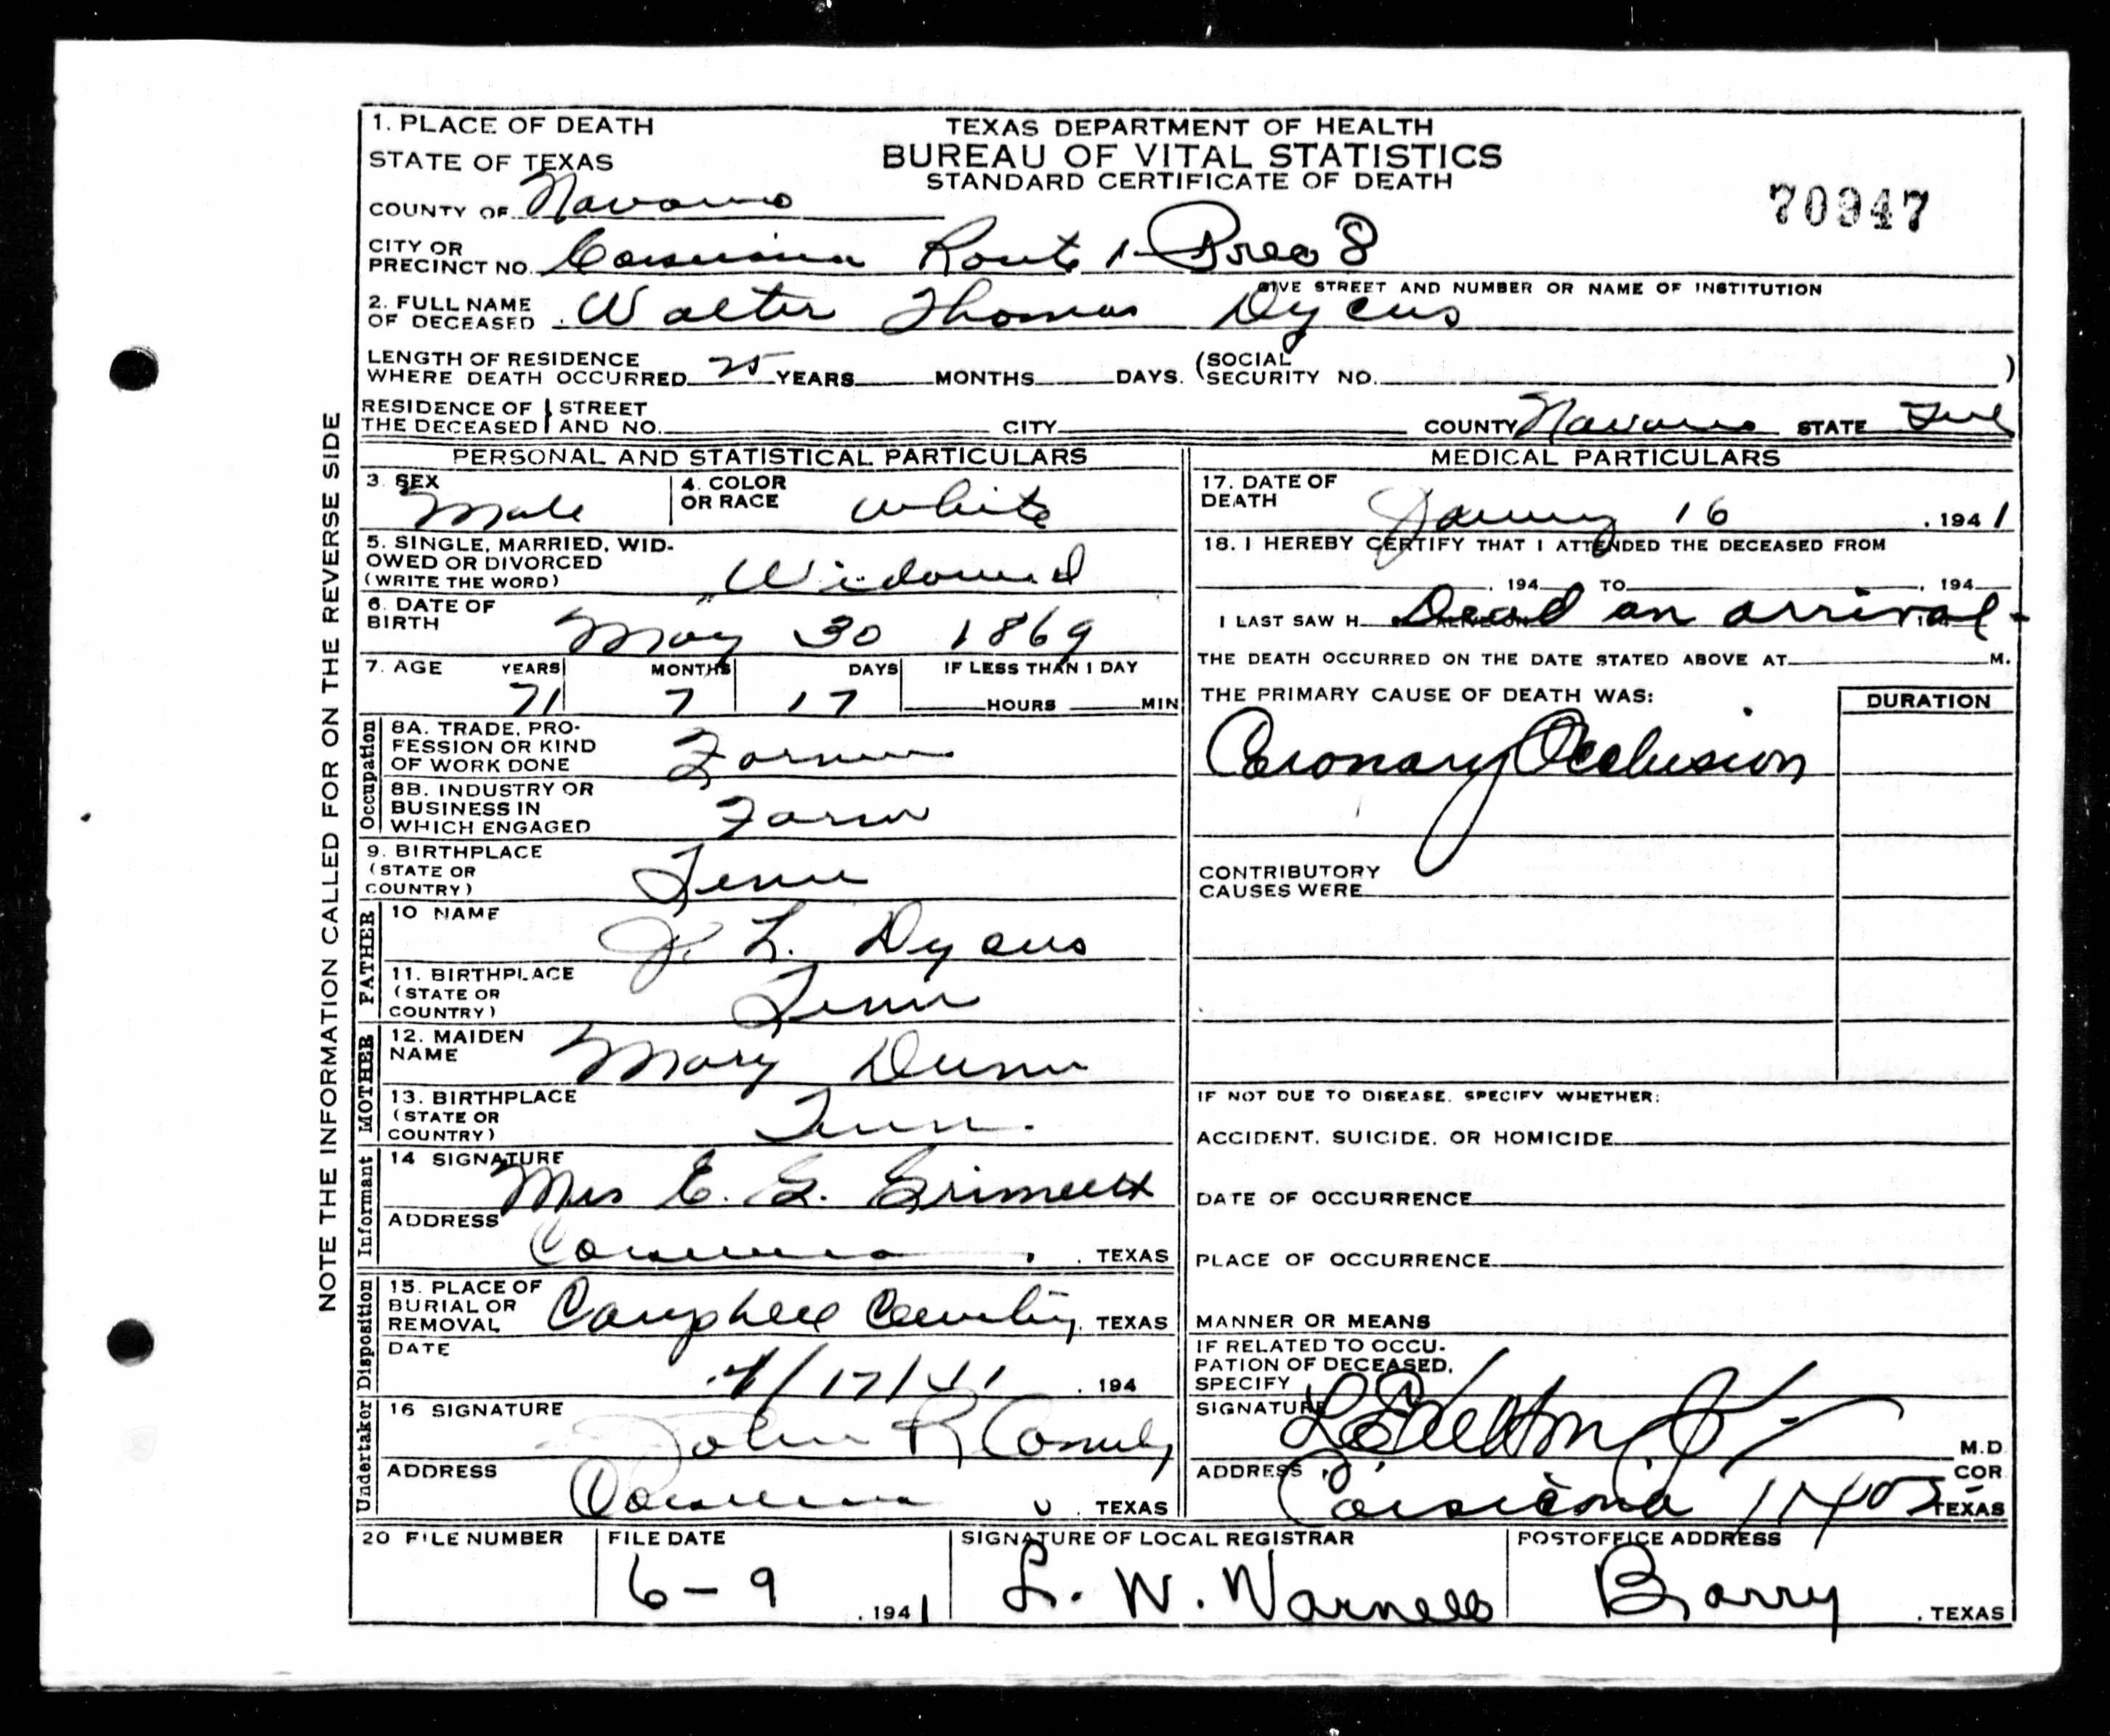 NOTE THE INFORMATION CALLED FOR ON THE REVERSE SIDE
1. PLACE OF DEATH
STATE OF TEXAS
TEXAS DEPARTMENT OF HEALTH
BUREAU OF VITAL STATISTICS
STANDARD CERTIFICATE OF DEATH
70947
COUNTY OF Navarro
CITY OR PRECINCT NO. Corsicana Route 1- Prec 8
GIVE STREET AND NUMBER OR NAME OF INSTITUTION
2. FULL NAME OF DECEASED Walter Thomas Dycus
LENGTH OF RESIDENCE WHERE DEATH OCCURRED 25 YEARS MONTHS DAYS. (SOCIAL SECURITY NO. )
RESIDENCE OF THE DECEASED STREET AND NO. CITY COUNTY Navarro STATE
PERSONAL AND STATISTICAL PARTICULARS
3. SEX Male
4. COLOR OR RACE White
5. SINGLE, MARRIED, WIDOWED OR DIVORCED (WRITE THE WORD) Widowed
6. DATE OF BIRTH May 30 1869
7. AGE YEARS MONTHS DAYS IF LESS THAN 1 DAY
71 7 17 HOURS MIN
Occupation
8A. TRADE, PROFESSION OR KIND OF WORK DONE Farmer
8B. INDUSTRY OR BUSINESS IN WHICH ENGAGED Farm
9. BIRTHPLACE (STATE OR COUNTRY) Tenn
FATHER
10 NAME J. L. Dycus
11. BIRTHPLACE (STATE OR COUNTRY) Tenn
MOTHER
12. MAIDEN NAME Mary Dunn
13. BIRTHPLACE (STATE OR COUNTRY) Tenn.
Informant
14 SIGNATURE Mrs E. G. Grimmett
ADDRESS Corsicana, TEXAS
Disposition
15. PLACE OF BURIAL OR REMOVAL Campbell Cemetery, TEXAS
DATE /17/41 , 194
Undertaker
16 SIGNATURE John R
ADDRESS Corsicana TEXAS
MEDICAL PARTICULARS
17. DATE OF DEATH January 16 , 1941
18. I HEREBY CERTIFY THAT I ATTENDED THE DECEASED FROM
, 194 TO , 194
I LAST SAW H Dead on arrival -
THE DEATH OCCURRED ON THE DATE STATED ABOVE AT M.
THE PRIMARY CAUSE OF DEATH WAS:
DURATION
Coronary Occlusion
CONTRIBUTORY CAUSES WERE
IF NOT DUE TO DISEASE, SPECIFY WHETHER:
ACCIDENT, SUICIDE, OR HOMICIDE
DATE OF OCCURRENCE
PLACE OF OCCURRENCE
MANNER OR MEANS
IF RELATED TO OCCUPATION OF DECEASED, SPECIFY
SIGNATURE M.D.
ADDRESS Corsicana COR. TEXAS
20 FILE NUMBER
FILE DATE 6-9 , 1941
SIGNATURE OF LOCAL REGISTRAR L. W. Warnell
POSTOFFICE ADDRESS Barry , TEXAS